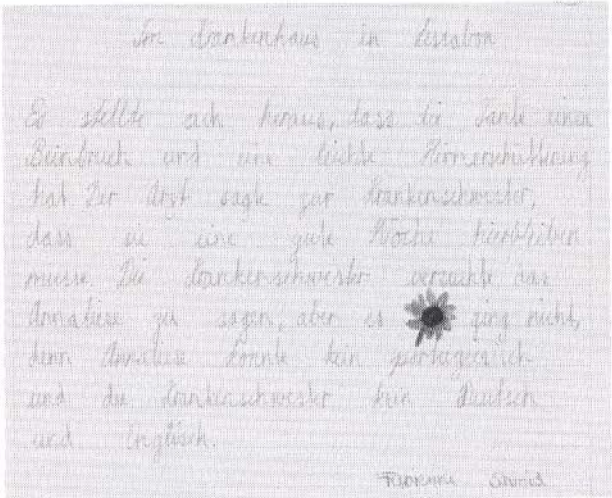 Im Krankenhaus in Lissabon
Es stellte sich heraus, dass die Tante einen
Beinbruch und eine leichte Hirnerschütterung
hat. Der Arzt sagte zur Krankenschwester,
dass sie eine gute Woche hierbleiben
müsse. Die Krankenschwester versuchte das
Annaliese zu sagen, aber es ging nicht,
denn Annaliese konnte kein portugiesisch
und die Krankenschwester kein Deutsch
und Englisch.